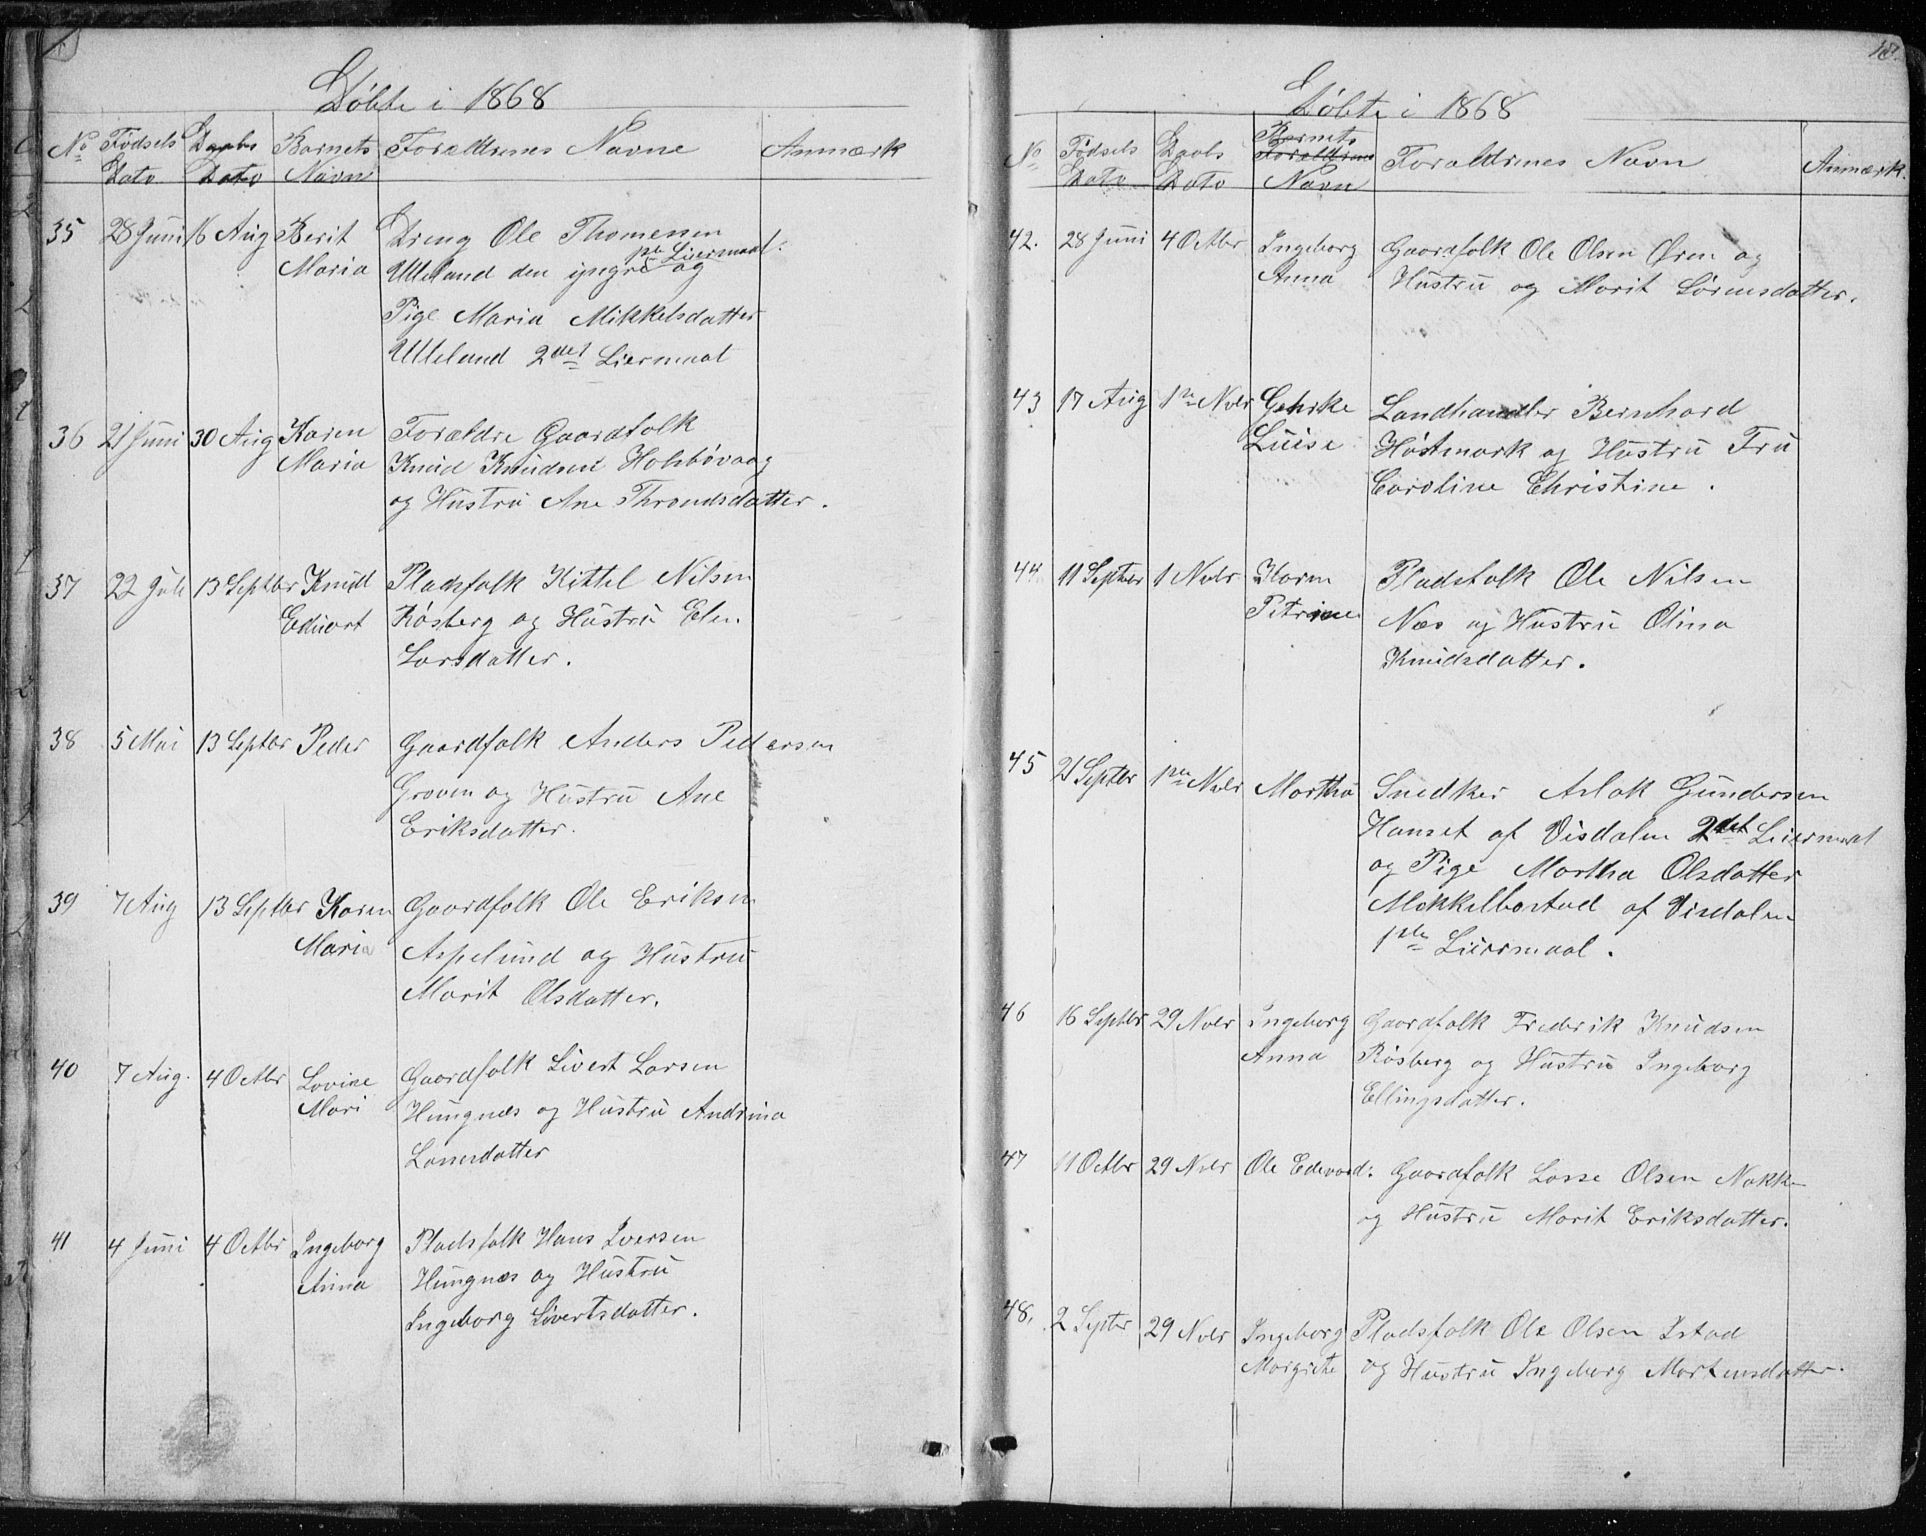 Døbte i 1868
No Fødsels Dato Daabs Dato Barnets Navn Forældrenes Navne Anmærk
35 28 Juni 16 Aug Berit Maria Dreng Ole Thomesen
Ulleland den yngre og 1ste Liermaal.
Pige Maria Mikkelsdatter
Ulleland 2det Liermaal
36 21 Juni 30 Aug Karen Maria Forældre Gaardfolk
Knud Knudsen Holsbøvaag
og Hustru Ane Throndsdatter.
37 22 Juli 13 Septbr Knud Eduart Pladsfolk Kittel Nilsen
Røsberg og Hustru Elen
Larsdatter.
38 5 Mai 13 Septbr Peder Gaardfolk Anders Pedersen
Groven og Hustru Ane
Eriksdatter.
39 7 Aug 13 Septbr Karen Maria Gaardfolk Ole Eriksen
Aspelund og Hustru
Marit Olsdatter.
40 7 Aug. 4 Octbr Lovine Mari Gaardfolk Sivert Larsen
Hungnæs og Hustru Andrina
Larsdatter
41 4 Juni 4 Octbr Ingeborg Anna Pladsfolk Hans Iversen
Hungnæs og Hustru
Ingeborg Sivertsdatter.
18.
Døbte i 1868
No Fødsels Dato Daabs Dato Barnets Forældrenes Navn Forældrenes Navn Anmærk.
42. 28 Juni 4 Octbr Ingeborg Anna Gaardfolk Ole Olsen Øren og
Hustru og Marit Sørensdatter.
43 17 Aug 1ste Nvbr Gehrke Luise Landhandler Bernhard
Høstmark og Hustru Fru
Caroline Christine.
44. 11 Septber 1 Nvbr Karen Petrine Pladsfolk Ole Nilsen
Næs og Hustru Olina
Knudsdatter.
45 21 Septbr 1ste Nvbr Martha Snedker Aslak Gundersen
Hanset af Visdalen 2det Leiermaal
og Pige Martha Olsdatter
Mekkelbostad af Visdalen
1ste Leiermaal.
46 16 Septbr 29 Nvbr Ingeborg Anna Gaardfolk Frederik Knudsen
Røsberg og Hustru Ingeborg
Ellingsdatter.
47 11 Octbr 29 Nvbr Ole Edevard. Gaardfolk Lasse Olsen Nakke
og Hustru Marit Eriksdatter.
48. 2 Septbr 29 Nvbr Ingeborg Margrete Pladsfolk Ole Olsen Istad
og Hustru Ingeborg Martensdatter.